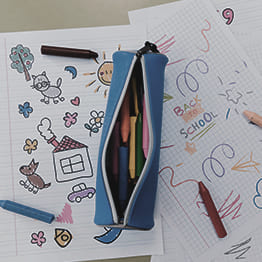 BACK
TO
SCHOOL